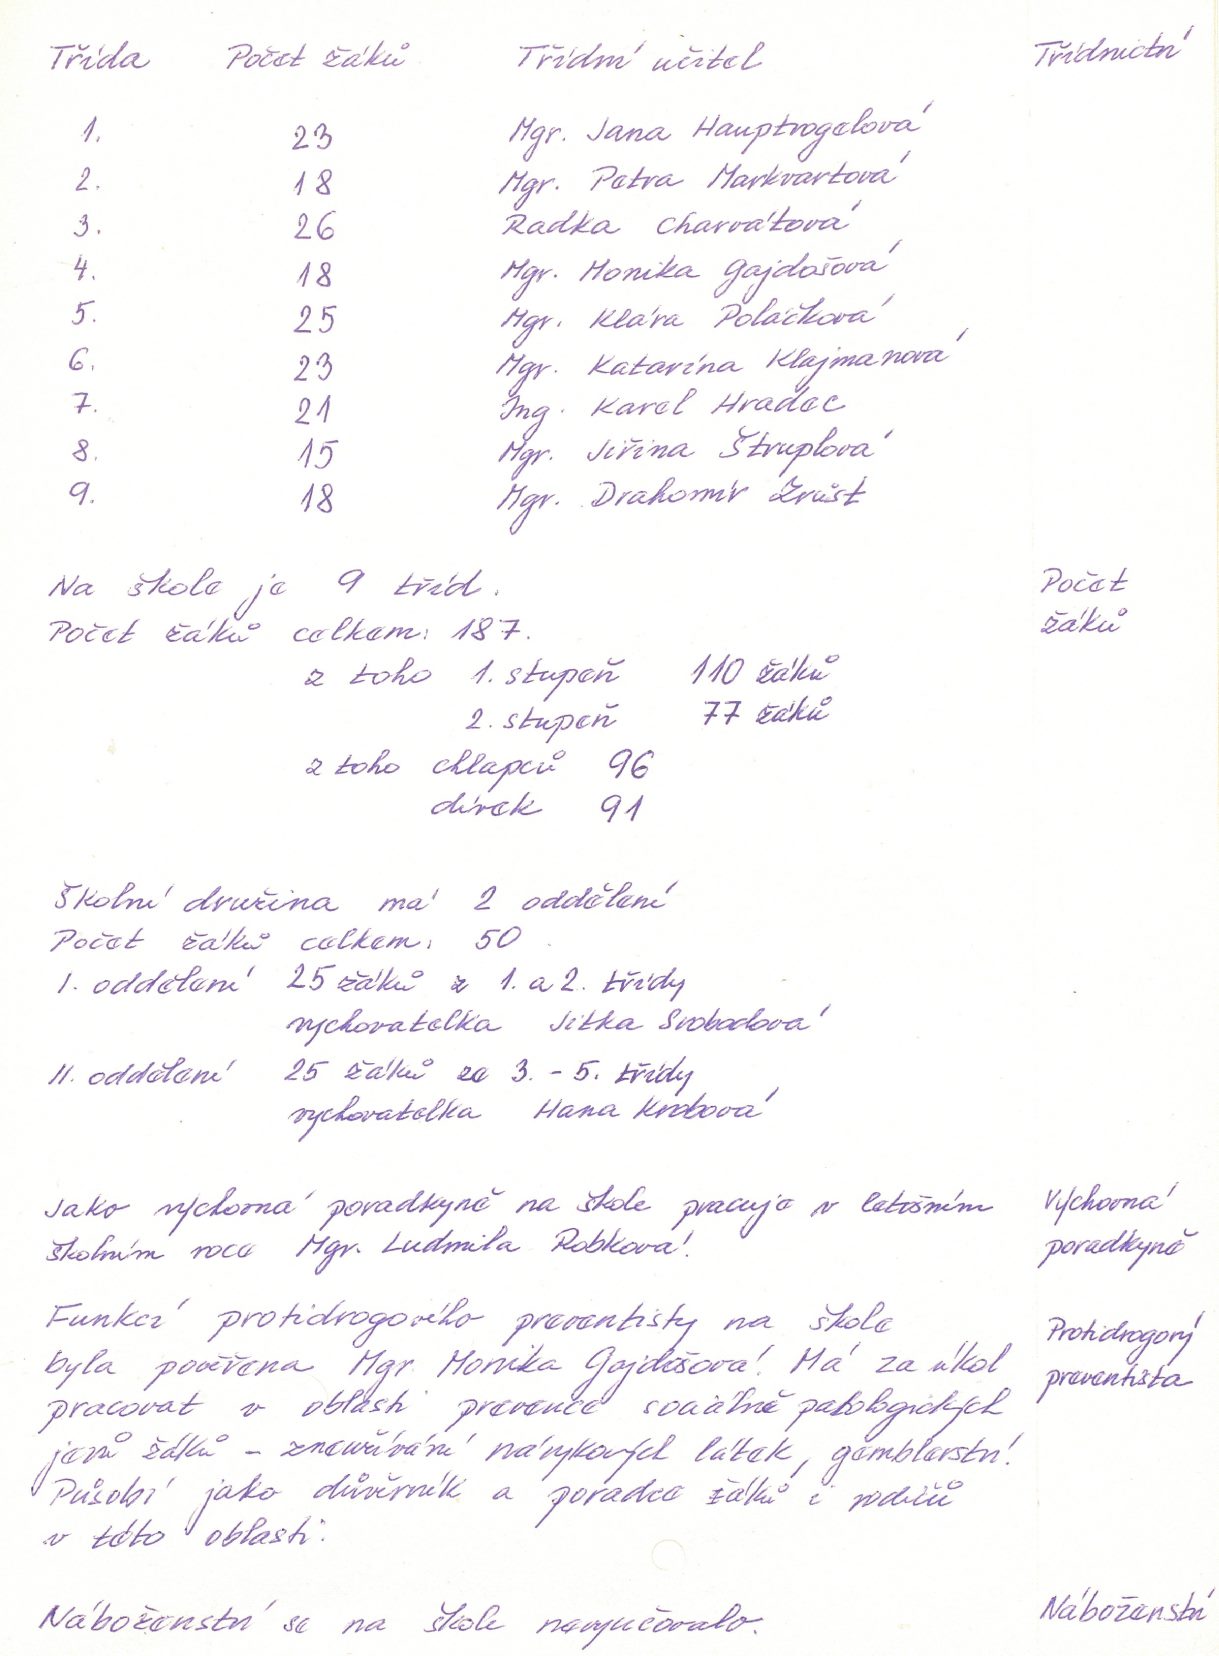 Třída Počet žáků Třídní učitel Třídnictví
1. 23 Mgr. Jana Hauptvogelová
2. 18 Mgr. Petra Markvartová
3. 26 Radka Charvátová
4. 18 Mgr. Monika Gajdošová
5. 25 Mgr. Klára Poláčková
6. 23 Mgr. Katarína Klajmanová
7. 21 Ing. Karel Hradec
8. 15 Mgr. Jiřina Štruplová
9. 18 Mgr. Drahomír Zrůst
Na škole je 9 tříd. Počet
Počet žáků celkem: 187. žáků
z toho 1. stupeň 110 žáků
2. stupeň 77 žáků
z toho chlapců 96
dívek 91
Školní družina má 2 oddělení
Počet žáků celkem: 50
I. oddělení 25 žáků z 1. a 2. třídy
vychovatelka Jitka Svobodová
II. oddělení 25 žáků ze 3. - 5. třídy
vychovatelka Hana Krobová
Jako výchovná poradkyně na škole pracuje v letošním Výchovná
školním roce Mgr. Ludmila Robková. poradkyně
Funkcí protidrogového preventisty na škole Protidrogový
byla pověřena Mgr. Monika Gajdošová. Má za úkol preventista
pracovat v oblasti prevence sociálně patologických
jevů žáků - zneužívání návykových látek, gemblerství.
Působí jako důvěrník a poradce žáků i rodičů
v této oblasti.
Náboženství se na škole nevyučovalo. Náboženství